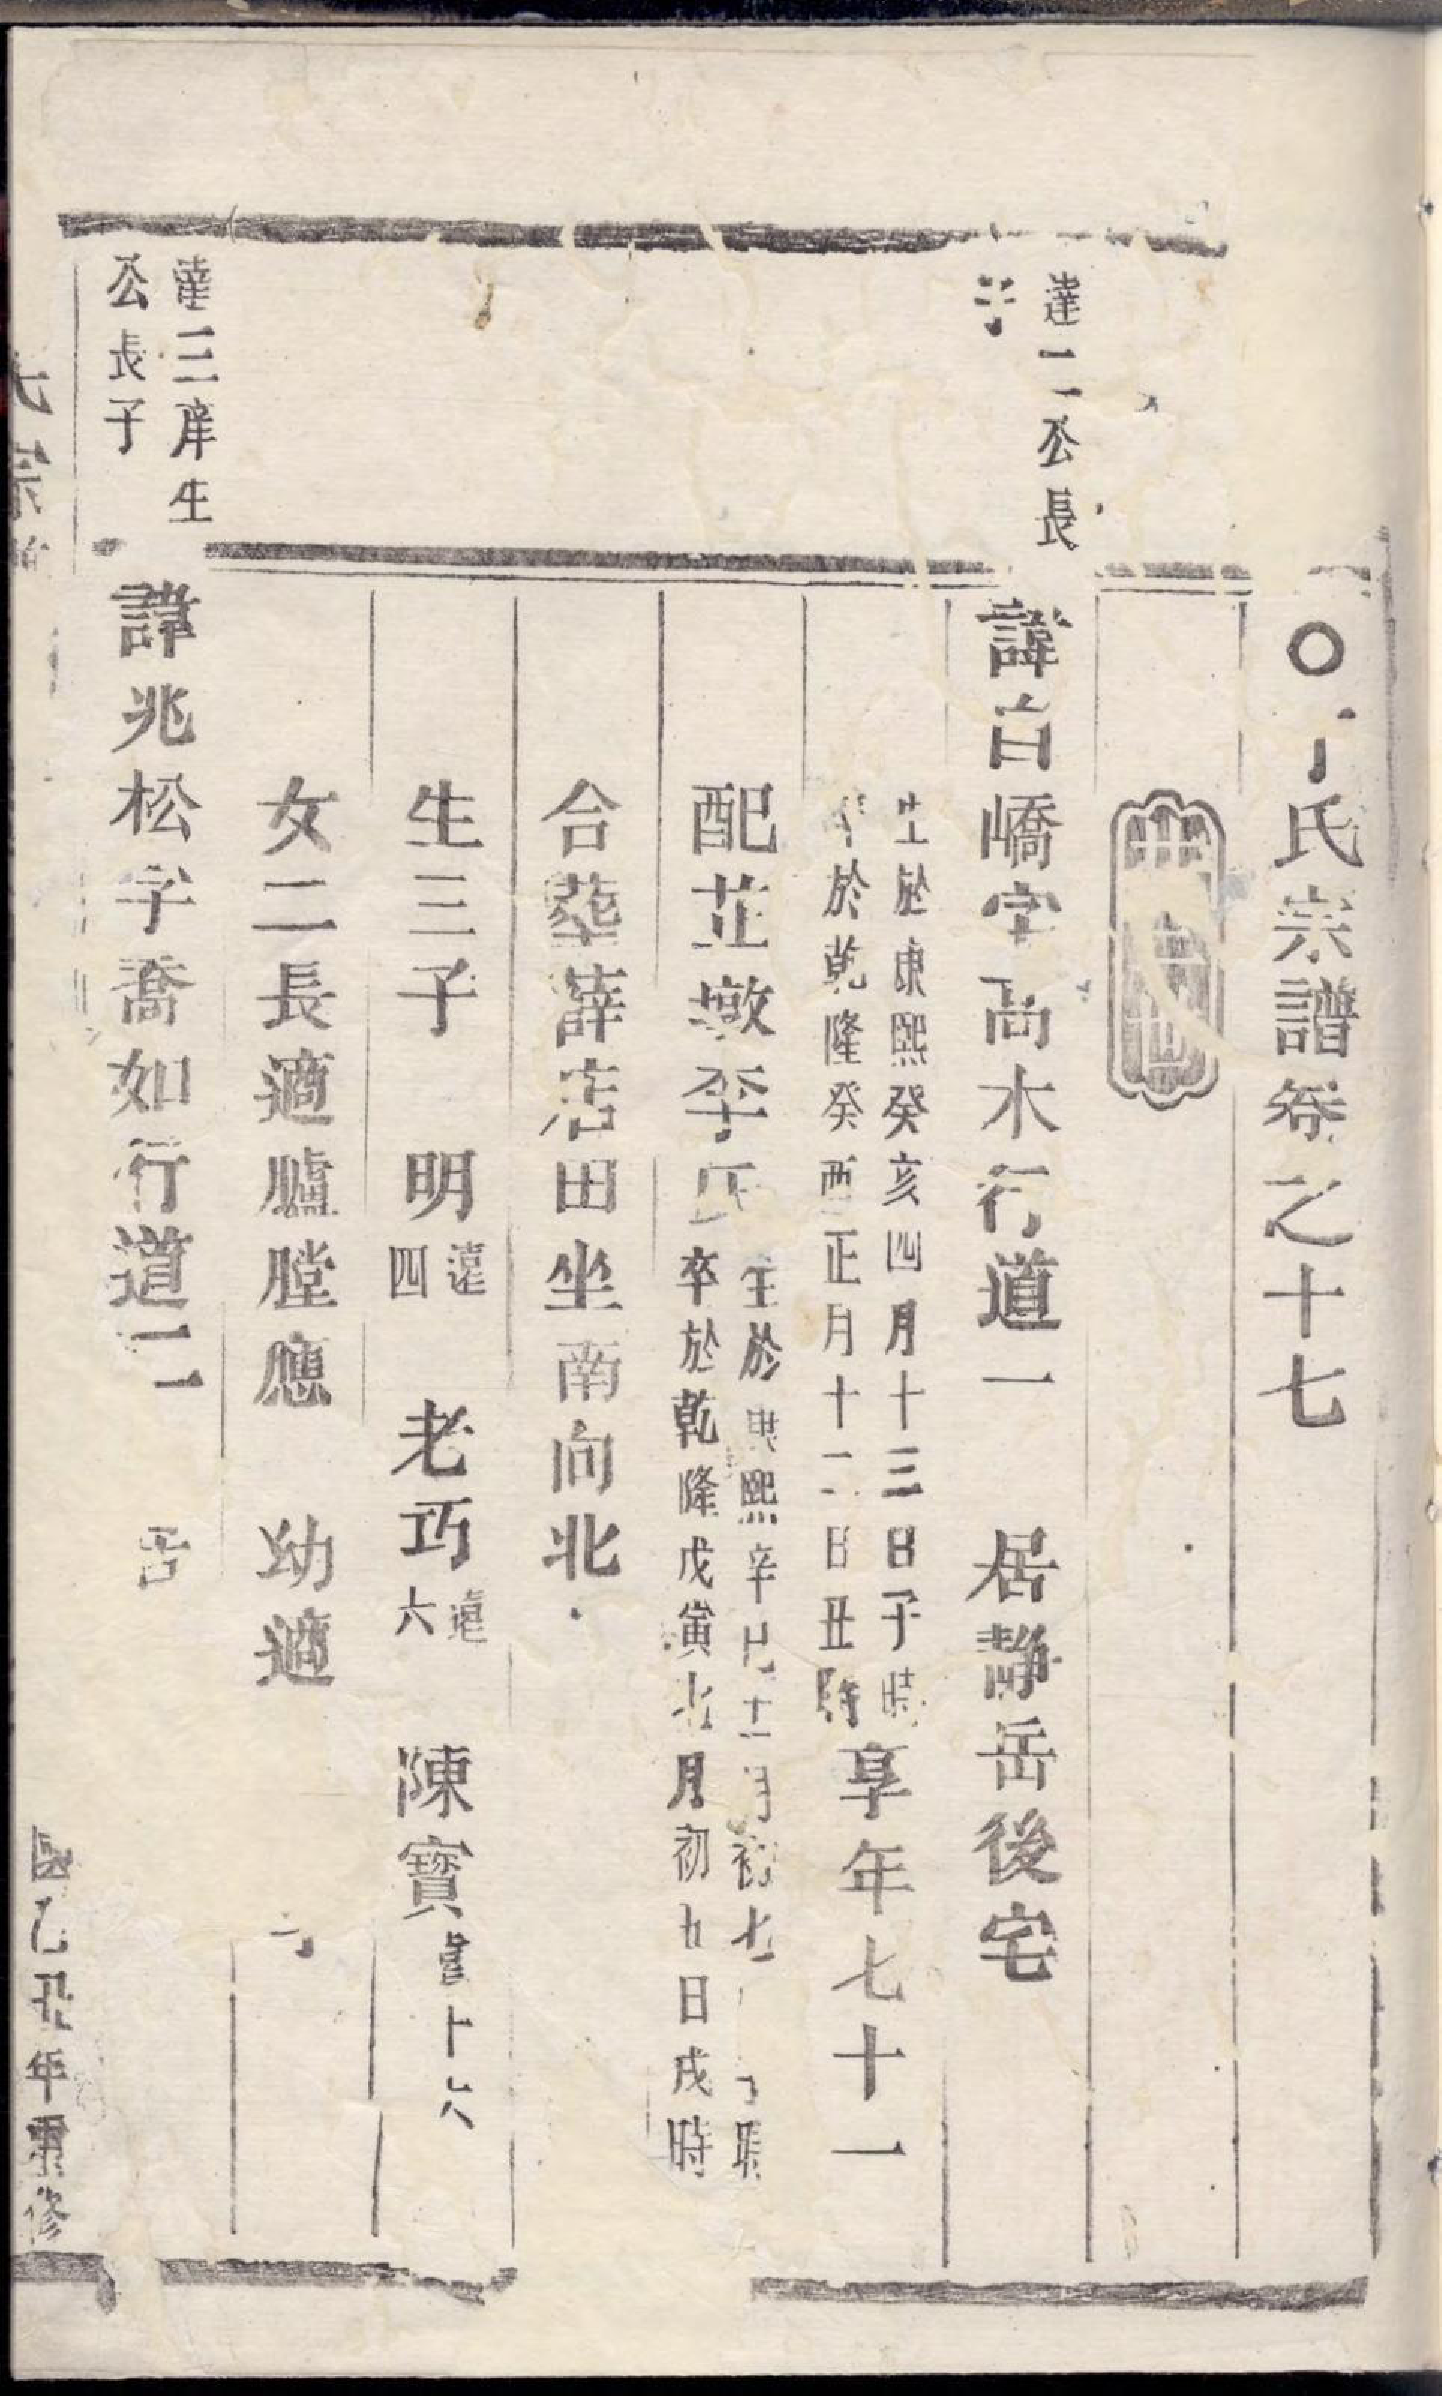 氏宗譜卷之十七
達二公長
子
諱白嶠字高木行道一 居靜岳後宅
生於康熙癸亥四月十三日子時
卒於乾隆癸酉正月十二日丑時
享年七十一
配芷墩李氏
生於康熙辛巳十一月初七 時
卒於乾隆戊寅 月初九日戌時
合葬薛店田坐南向北
生三子 明遠四 老巧遠六 陳寶 十六
女二長適臚膛應 幼適
達三庠生
公長子
諱兆松字喬如行道二
宗
國乙丑年重修